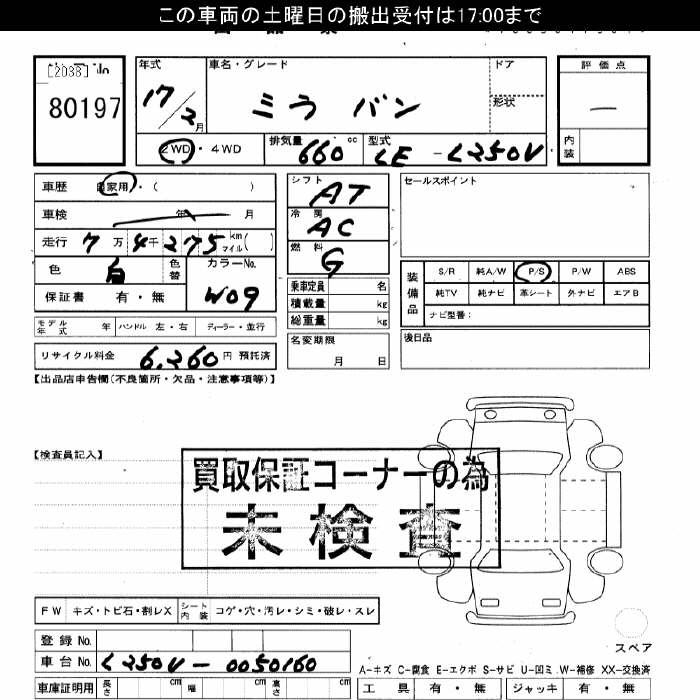 この車両の土曜日の搬出受付は17:00まで
[2088] No
80197
年式 17/2月
車名・グレード ミラ バン
ドア
形状
評価点 —
内装
2WD ・ 4WD
排気量 660 cc
型式 LE - L250V
車歴 自家用・( )
車検 年 月
走行 7万 4千 275 km マイル( )
色 白 色替
カラーNo. W09
保証書 有・無
シフト AT
冷房 AC
燃料 G
乗車定員 名
積載量 kg
総重量 kg
セールスポイント
装備品
S/R 純A/W P/S P/W ABS
純TV 純ナビ 革シート 外ナビ エアB
ナビ型番:
モデル年式 年 ハンドル 左・右 ディーラー・並行
名変期限 月 日
後日品
リサイクル料金 6,260 円 預託済
【出品店申告欄(不良箇所・欠品・注意事項等)】
【検査員記入】
買取保証コーナーの為
未検査
FW キズ・トビ石・割レX シート内装 コゲ・穴・汚レ・シミ・破レ・スレ
スペア
登録 No.
車台 No. L250V-0050160
A-キズ C-腐食 E-エクボ S-サビ U-凹ミ W-補修 XX-交換済
車庫証明用 長さ cm 幅 cm 高さ cm
工具 有・無 ジャッキ 有・無